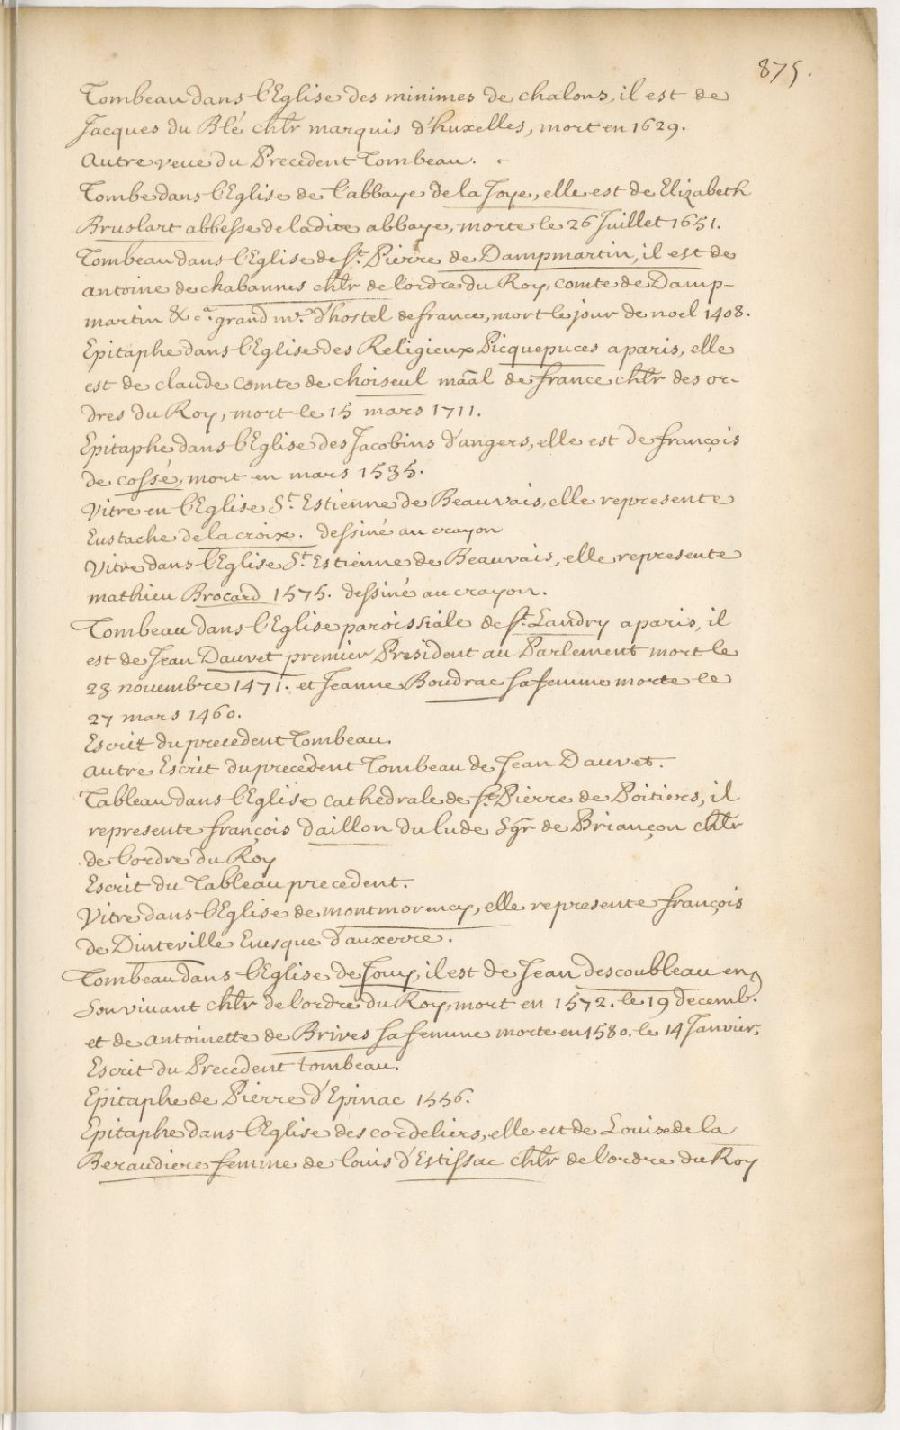 875.
Tombeau dans l'Eglise des minimes de chalons, il est de
Jacques du Blé chlr marquis d'huxelles, mort en 1629.
Autre veue du Precedent Tombeau.
Tombe dans l'Eglise de l'abbaye de la Joye, elle est de Elizabeth
Bruslart abbesse de ladite abbaye, morte le 26 Juillet 1651.
Tombeau dans l'Eglise de St. Pierre de Dampmartin, il est de
antoine de chabannes chlr de l'ordre du Roy, comte de Damp-
martin &ca. grand mc. d'hostel de france, mort le jour de noel 1408.
Epitaphe dans l'Eglise des Religieux Picquepuces a paris, elle
est de claude comte de choiseul maāl de france chlr des or-
dres du Roy, mort le 15 mars 1711.
Epitaphe dans l'Eglise des Jacobins d'angers, elle est de françois
de cossé, mort en mars 1535.
Vitre en l'Eglise St. Estienne de Beauvais, elle represente
Eustache de la croix. dessiné au crayon
Vitre dans l'Eglise St. Estienne de Beauvais, elle represente
mathieu Brocard 1575. dessiné au crayon.
Tombeau dans l'Eglise paroissiale de St. Landry a paris, il
est de Jean Dauvet premier President au Parlement mort le
23 novembre 1471. et Jeanne Boudrac sa femme morte le
27 mars 1460.
Escrit du precedent Tombeau.
Autre Escrit du precedent Tombeau de Jean Dauvet.
Tableau dans l'Eglise cathedrale de St. Pierre de Poitiers, il
represente françois daillon du lude Sgr de Briançon chlr
de l'ordre du Roy
Escrit du Tableau precedent.
Vitre dans l'Eglise de montmorency, elle represente françois
de Dinteville Evesque d'auxerre.
Tombeau dans l'Eglise de Jouy, il est de Jean descoubleau en
son vivant chlr de l'ordre du Roy, mort en 1572. le 19 decemb.
et de antoinette de Brives sa femme morte en 1580. le 14 Janvier.
Escrit du Precedent tombeau.
Epitaphe de Pierre d'Epinac 1556.
Epitaphe dans l'Eglise des cordeliers, elle est de Louise de la
Beraudiere femme de louis d'Estissac chlr de l'ordre du Roy